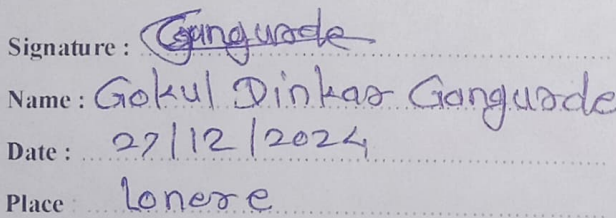 Signature : Gangurde
Name : Gokul Dinkar Gangurde
Date : 27/12/2024
Place : Lonere